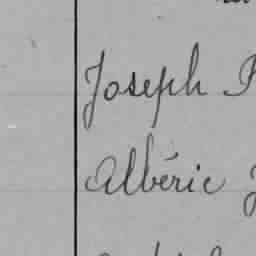 Joseph
Albéric